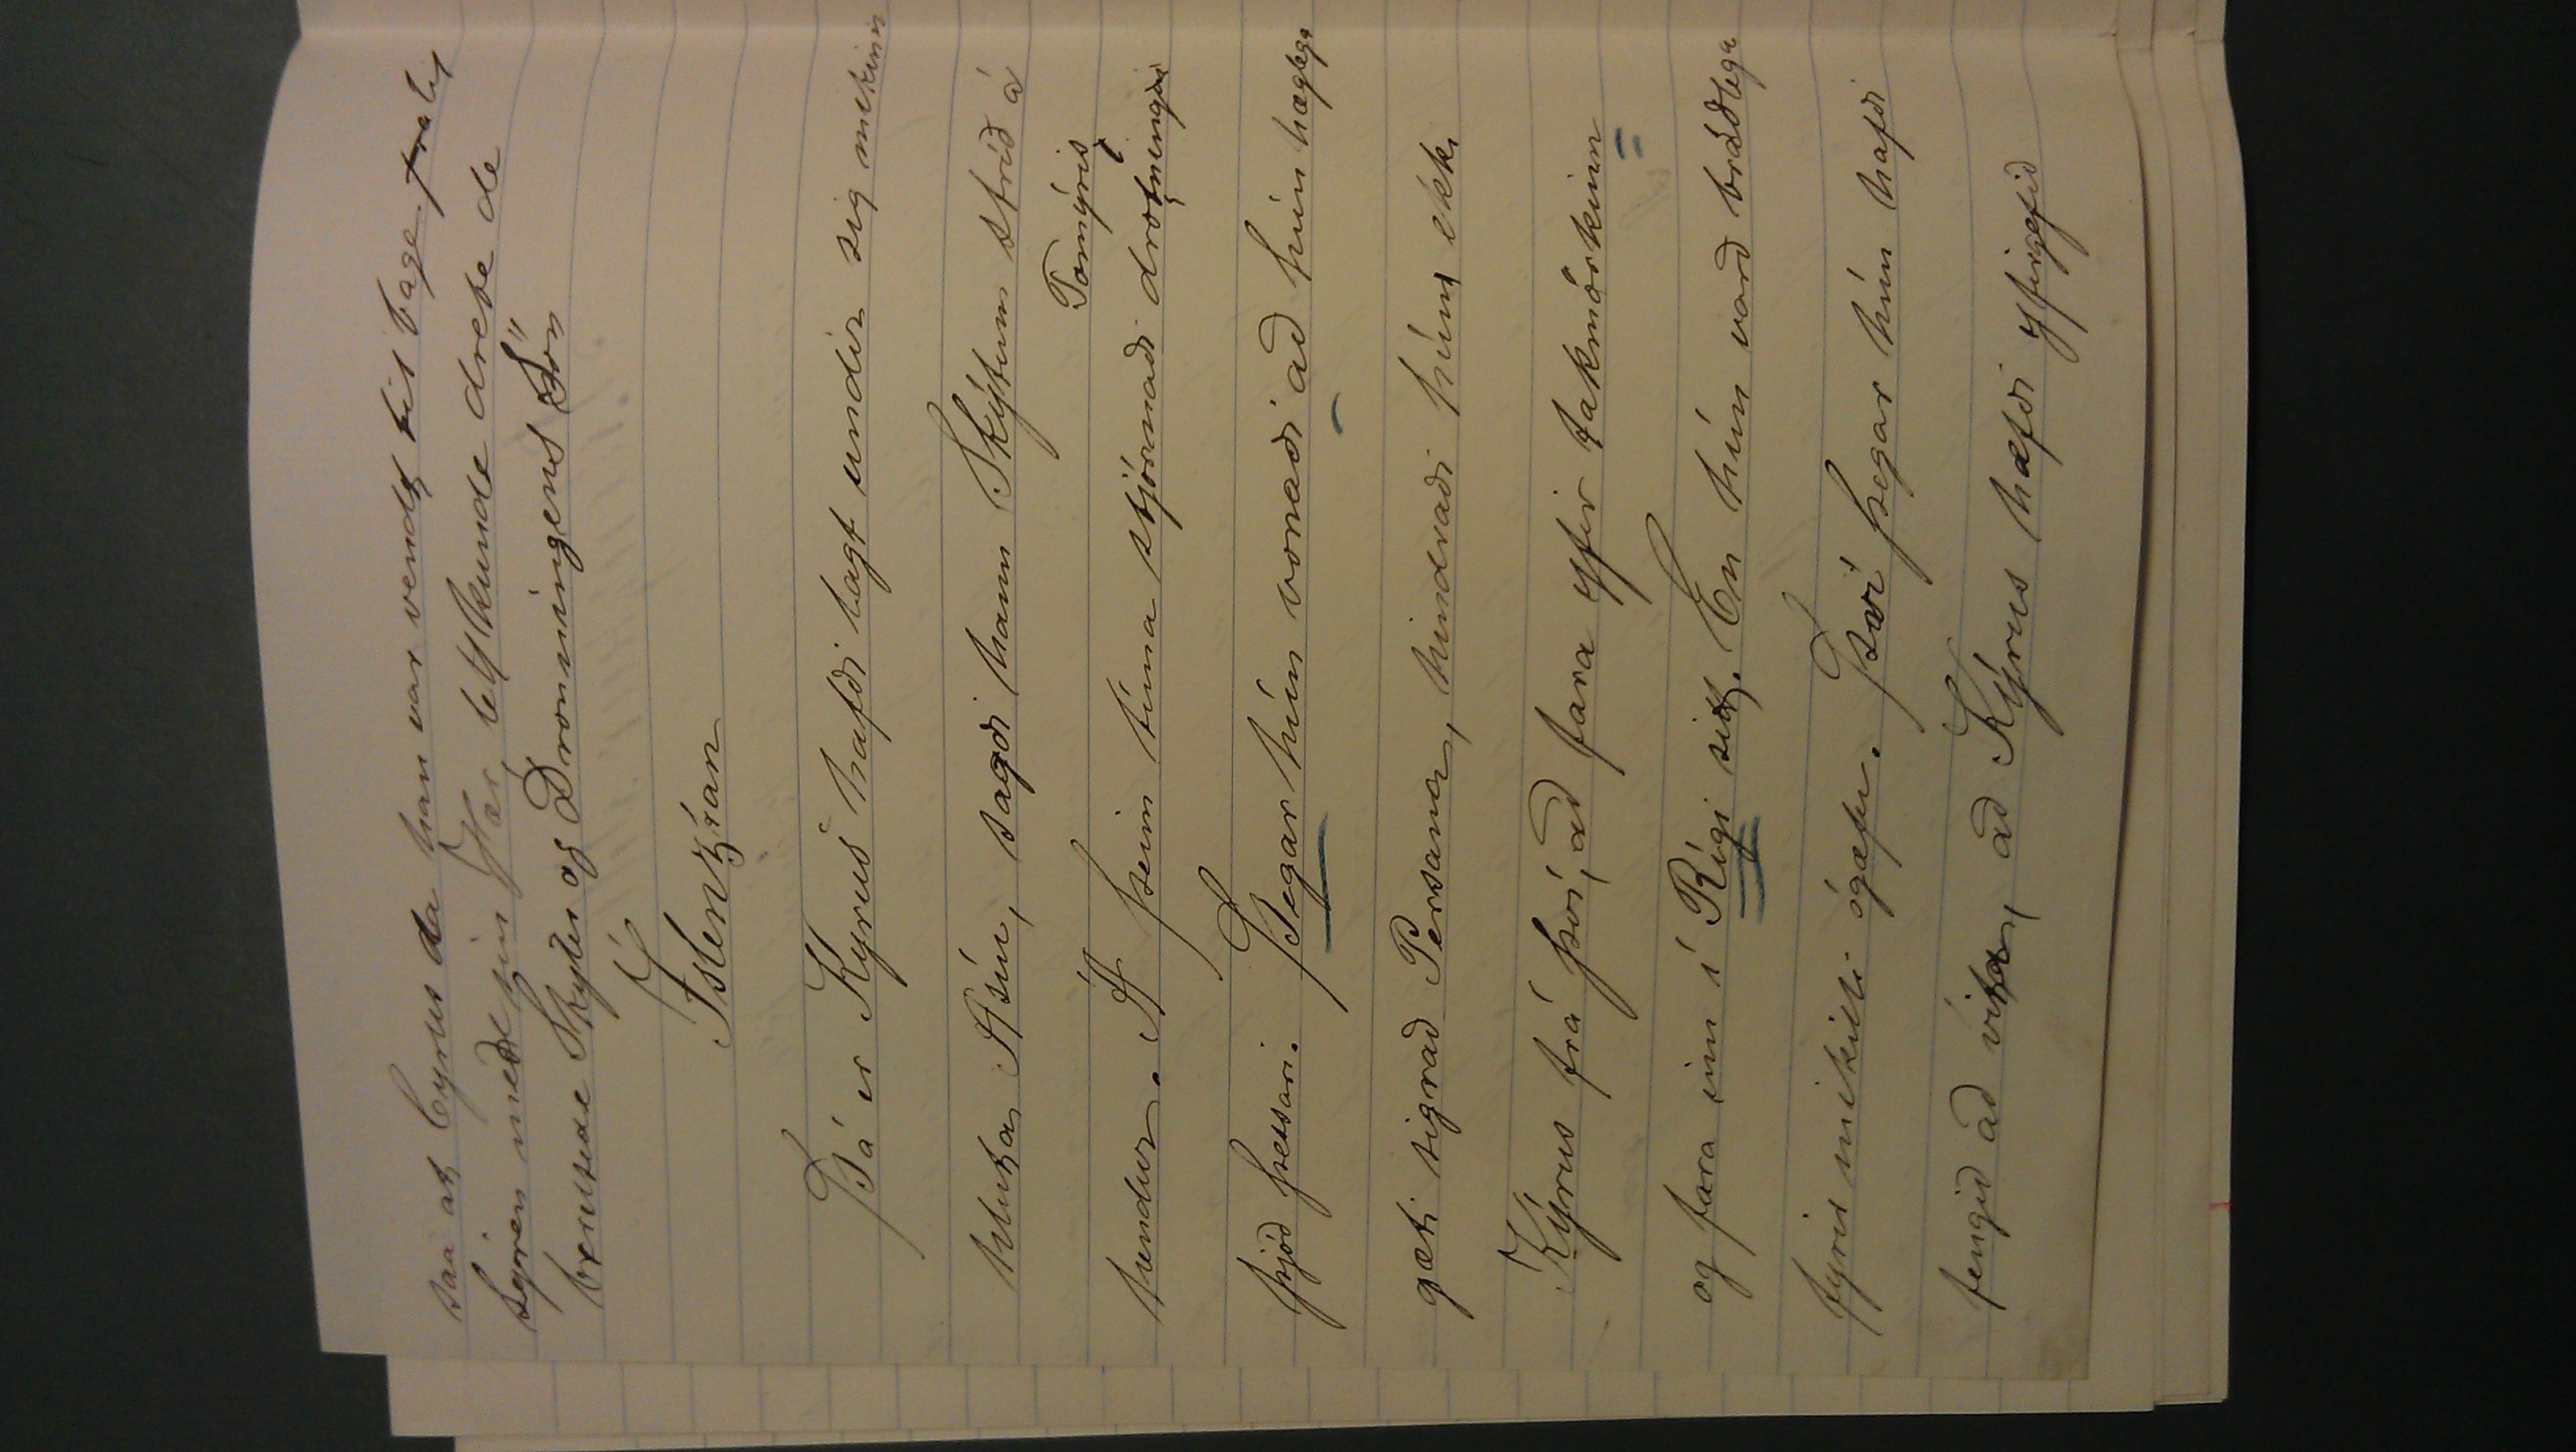 saa at Cyrus da han var vendt til bage
sejren med sin Hær, let kunde dræbe de
berusede Skyter og Dronningens Sön
Íslenzkan
Þá er Kyrus hafði lagt undir sig mikinn
hluta Asíu, sagði hann Skýtum stríð á
Tomýris
hendur. Á þeim tíma stjórnaði drottningin
þjóð þessari. Þegar hún vonaði að hún hæglega
gæti sigrað Persana, hindraði hún ekki
Kýrus frá því, að fara yfir takmörkin
og fara inn í Rígi sitt. En hún varð bráðlega
fyrir mikilli ógæfu. Því þegar hún hafði
fengið að vita, að Kýrus hafði yfirgefið